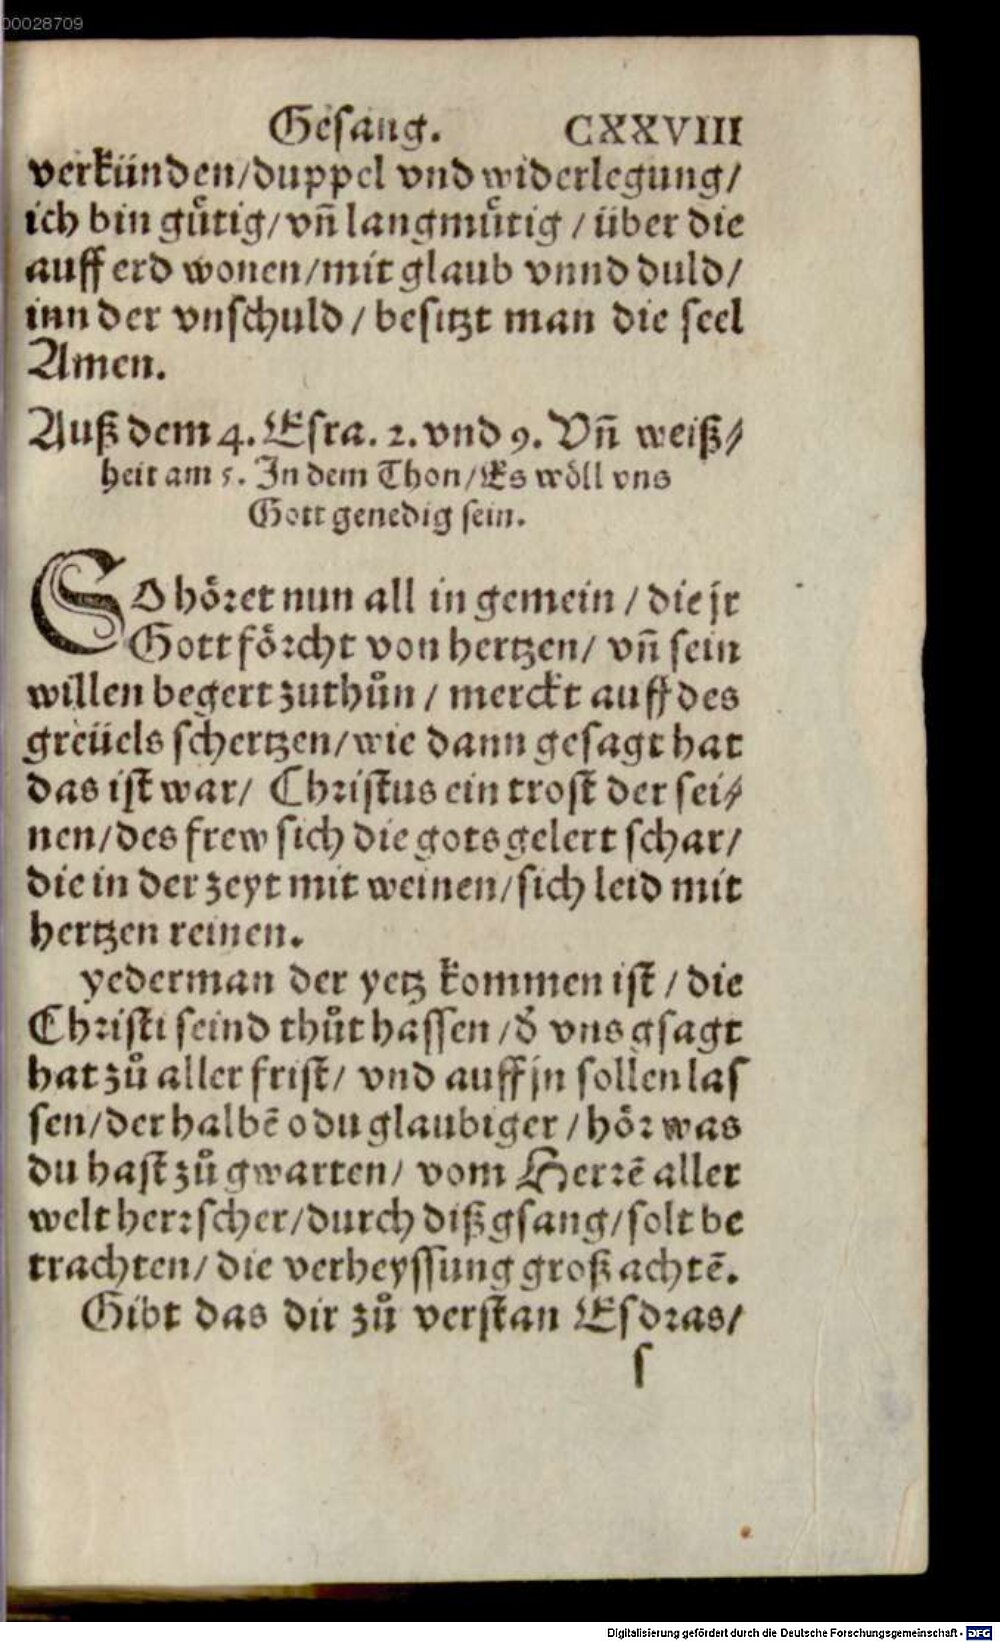 00028709
Gesang. CXXVIII
verkünden/duppel vnd widerlegung/
ich bin guͤtig/vñ langmuͤtig / über die
auff erd wonen/mit glaub vnnd duld/
inn der vnschuld / besitzt man die seel
Amen.
Auß dem 4. Esra. 2. vnd 9. Vñ weiß⸗
heit am 5. In dem Thon/Es woͤll vns
Gott genedig sein.
SO hoͤret nun all in gemein / die jr
Gott foͤrcht von hertzen/ vñ sein
willen begert zuthuͦn / merckt auff des
greüels schertzen/wie dann gesagt hat
das ist war/ Christus ein trost der sei⸗
nen/des frew sich die gots gelert schar/
die in der zeyt mit weinen/sich leid mit
hertzen reinen.
yederman der yetz kommen ist / die
Christi seind thuͦt hassen /d̕ vns gsagt
hat zuͦ aller frist/ vnd auff jn sollen las
sen/der halbẽ o du glaubiger / hoͤr was
du hast zuͦ gwarten/ vom Herrẽ aller
welt herrscher/durch diß gsang/solt be
trachten/ die verheyssung groß achtẽ.
Gibt das dir zuͦ verstan Esdras/
s
Digitalisierung gefördert durch die Deutsche Forschungsgemeinschaft - DFG